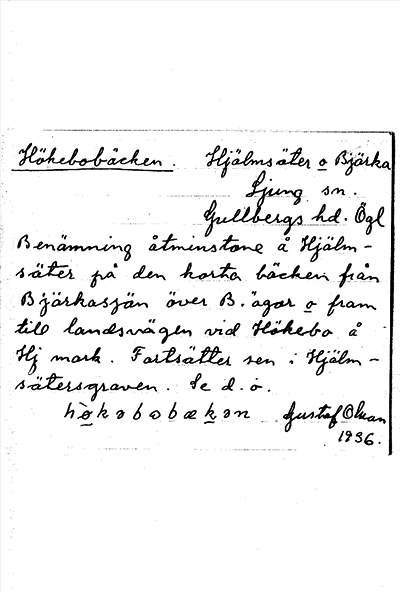 Hökebobäcken. Hjälmsäter o Bjärka
Ljung sn.
Gullbergs hd. Ögl
Benämning åtminstone å Hjälm-
säter på den korta bäcken från
Bjärkasjön över B. ägor o fram
till landsvägen vid Hökebo å
Hj mark. Fortsätter sen i Hjälm-
sätersgraven. Se d. o.
hø̀kəbobækən Gustaf Olsson
1936.